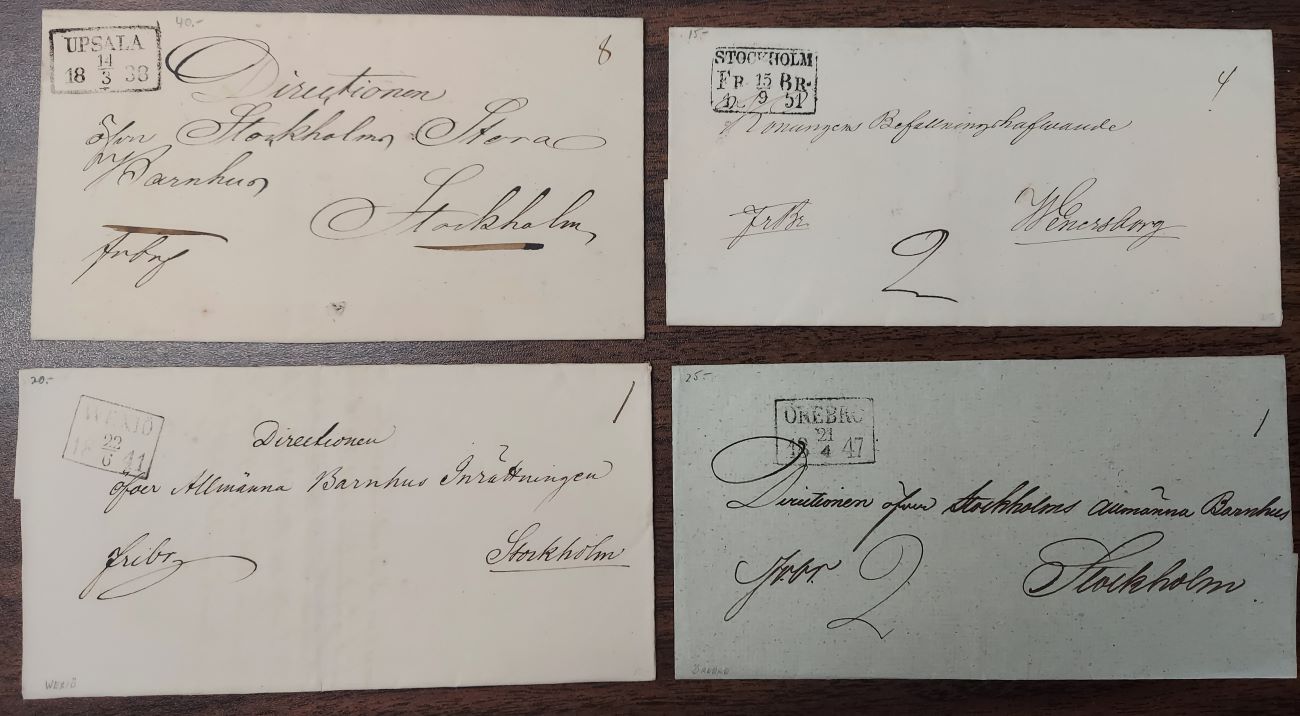 40.-
UPSALA
14
18 3 38
8
Directionen
öfver Stockholms Stora
Barnhus
Stockholm
frbrf
15-
STOCKHOLM
FR. 15 BR.
9 51
4
Konungens Befallningshafwande
FrBr
Wenersborg
2
20.-
WEXIÖ
22
18 6 41
1
Directionen
öfver Allmänna Barnhus Inrättningen
fribr
Stockholm
WEXIÖ
25-
ÖREBRO
21
18 4 47
1
Directionen öfver Stockholms allmänna Barnhus
Frbr.
2
Stockholm
ÖREBRO